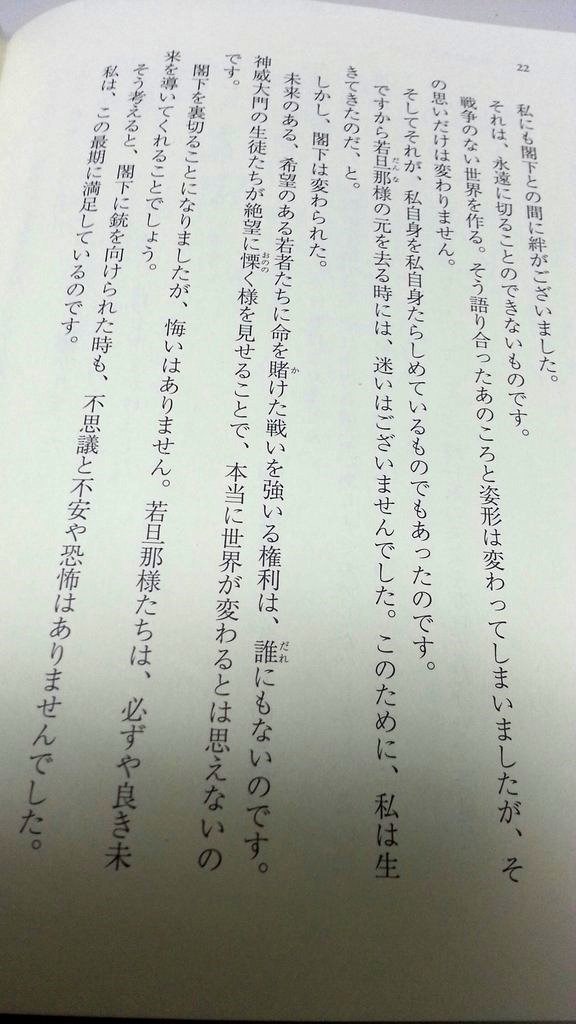 22
私にも閣下との間に絆がございました。
それは、永遠に切ることのできないものです。
戦争のない世界を作る。そう語り合ったあのころと姿形は変わってしまいましたが、そ
の思いだけは変わりません。
そしてそれが、私自身を私自身たらしめているものでもあったのです。
ですから若旦那様の元を去る時には、迷いはございませんでした。このために、私は生
きてきたのだ、と。
しかし、閣下は変わられた。
未来のある、希望のある若者たちに命を賭けた戦いを強いる権利は、誰にもないのです。
神威大門の生徒たちが絶望に慄く様を見せることで、本当に世界が変わるとは思えないの
です。
閣下を裏切ることになりましたが、悔いはありません。若旦那様たちは、必ずや良き未
来を導いてくれることでしょう。
そう考えると、閣下に銃を向けられた時も、不思議と不安や恐怖はありませんでした。
私は、この最期に満足しているのです。